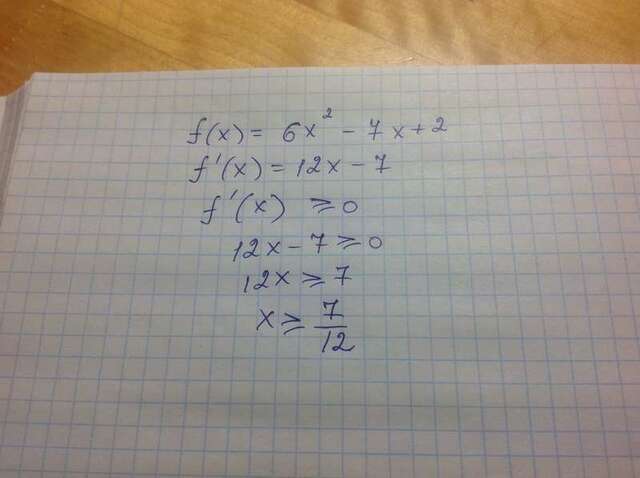 f(x) = 6x² - 7x + 2
f'(x) = 12x - 7
f'(x) ⩾ 0
12x - 7 ⩾ 0
12x ⩾ 7
x ⩾ 7/12